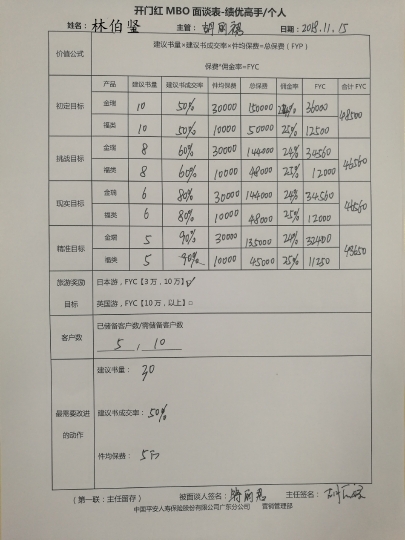 开门红 MBO 面谈表-绩优高手/个人
姓名： 林伯坚 主管： 日期： 2018.11.15
价值公式 建议书量×建议书成交率×件均保费=总保费（FYP）
保费*佣金率=FYC
产品 建议书量 建议书成交率 件均保费 总保费 佣金率 FYC 合计 FYC
初定目标 金瑞 10 50% 30000 150000 24% 36000 48500
福类 10 50% 10000 50000 25% 12500
挑战目标 金瑞 8 60% 30000 144000 24% 34560 46560
福类 8 60% 10000 48000 25% 12000
现实目标 金瑞 6 80% 30000 144000 24% 34560 46560
福类 6 80% 10000 48000 25% 12000
精准目标 金瑞 5 90% 30000 135000 24% 32400 43650
福类 5 90% 10000 45000 25% 11250
旅游奖励目标 日本游，FYC【3 万，10 万】☑
英国游，FYC【10 万，以上】□
客户数 已储备客户数/需储备客户数
5 , 10
最需要改进的动作 建议书量： 30
建议书成交率： 50%
件均保费： 5万
（第一联：主任留存） 被面谈人签名： 主任签名：
中国平安人寿保险股份有限公司广东分公司 营销管理部